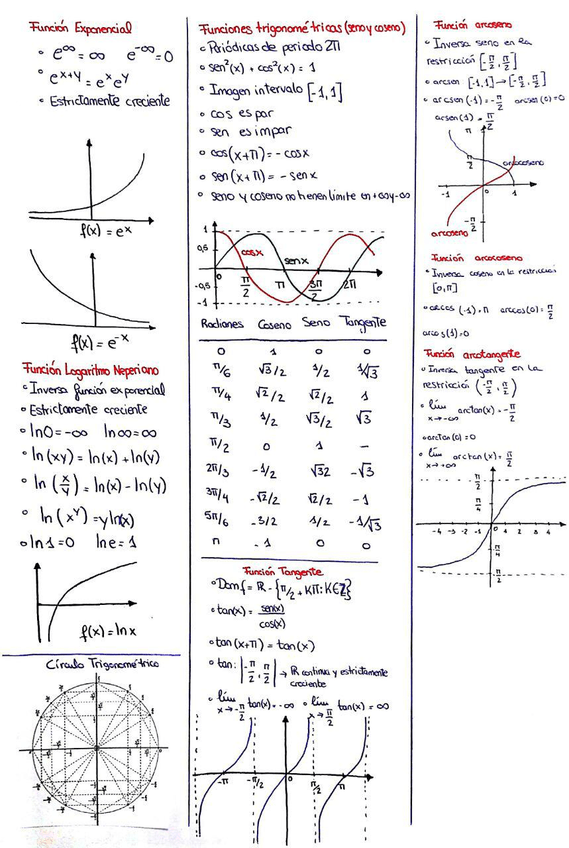 Función Exponencial
e^∞ = ∞ e^-∞ = 0
e^x+y = e^x e^y
Estrictamente creciente
f(x) = e^x
f(x) = e^-x
Función Logaritmo Neperiano
Inversa función exponencial
Estrictamente creciente
ln0 = -∞ ln∞ = ∞
ln(xy) = ln(x) + ln(y)
ln(x/y) = ln(x) - ln(y)
ln(x^y) = y ln(x)
ln1 = 0 lne = 1
f(x) = lnx
Círculo Trigonométrico
Funciones trigonométricas (seno y coseno)
Periódicas de periodo 2π
sen²(x) + cos²(x) = 1
Imagen intervalo [-1,1]
cos es par
sen es impar
cos(x+π) = - cosx
sen(x+π) = - senx
seno y coseno no tienen límite en +∞ y -∞
1
0,5
0
-0,5
-1
cosx
senx
π/2 π 3π/2 2π
Radianes Coseno Seno Tangente
0 1 0 0
π/6 √3/2 1/2 1/√3
π/4 √2/2 √2/2 1
π/3 1/2 √3/2 √3
π/2 0 1 -
2π/3 -1/2 √32 -√3
3π/4 -√2/2 √2/2 -1
5π/6 -3/2 1/2 -1/√3
π -1 0 0
Función Tangente
Dom f = ℝ - {π/2 + Kπ : K∈ℤ}
tan(x) = sen(x)/cos(x)
tan(x+π) = tan(x)
tan: |-π/2, π/2| → ℝ continua y estrictamente
creciente
lím x→-π/2 tan(x) = -∞ lím x→π/2 tan(x) = ∞
-π -π/2 0 π/2 π
Función arcoseno
Inversa seno en la
restricción [-π/2, π/2]
arcsen [-1,1] → [-π/2, π/2]
arcsen(-1) = -π/2 arcsen(0) = 0
arcsen(1) = π/2
π
π/2
arcocoseno
-1 1
-π/2
arcoseno
Función arcocoseno
Inversa coseno en la restricción
[0,π]
arccos(-1) = π arccos(0) = π/2
arcos(1) = 0
Función arcotangente
Inversa tangente en la
restricción (-π/2, π/2)
lím x→-∞ arctan(x) = -π/2
arctan(0) = 0
lím x→+∞ arctan(x) = π/2
π/2
π/4
-4 -3 -2 -1 0 1 2 3 4
-π/4
-π/2